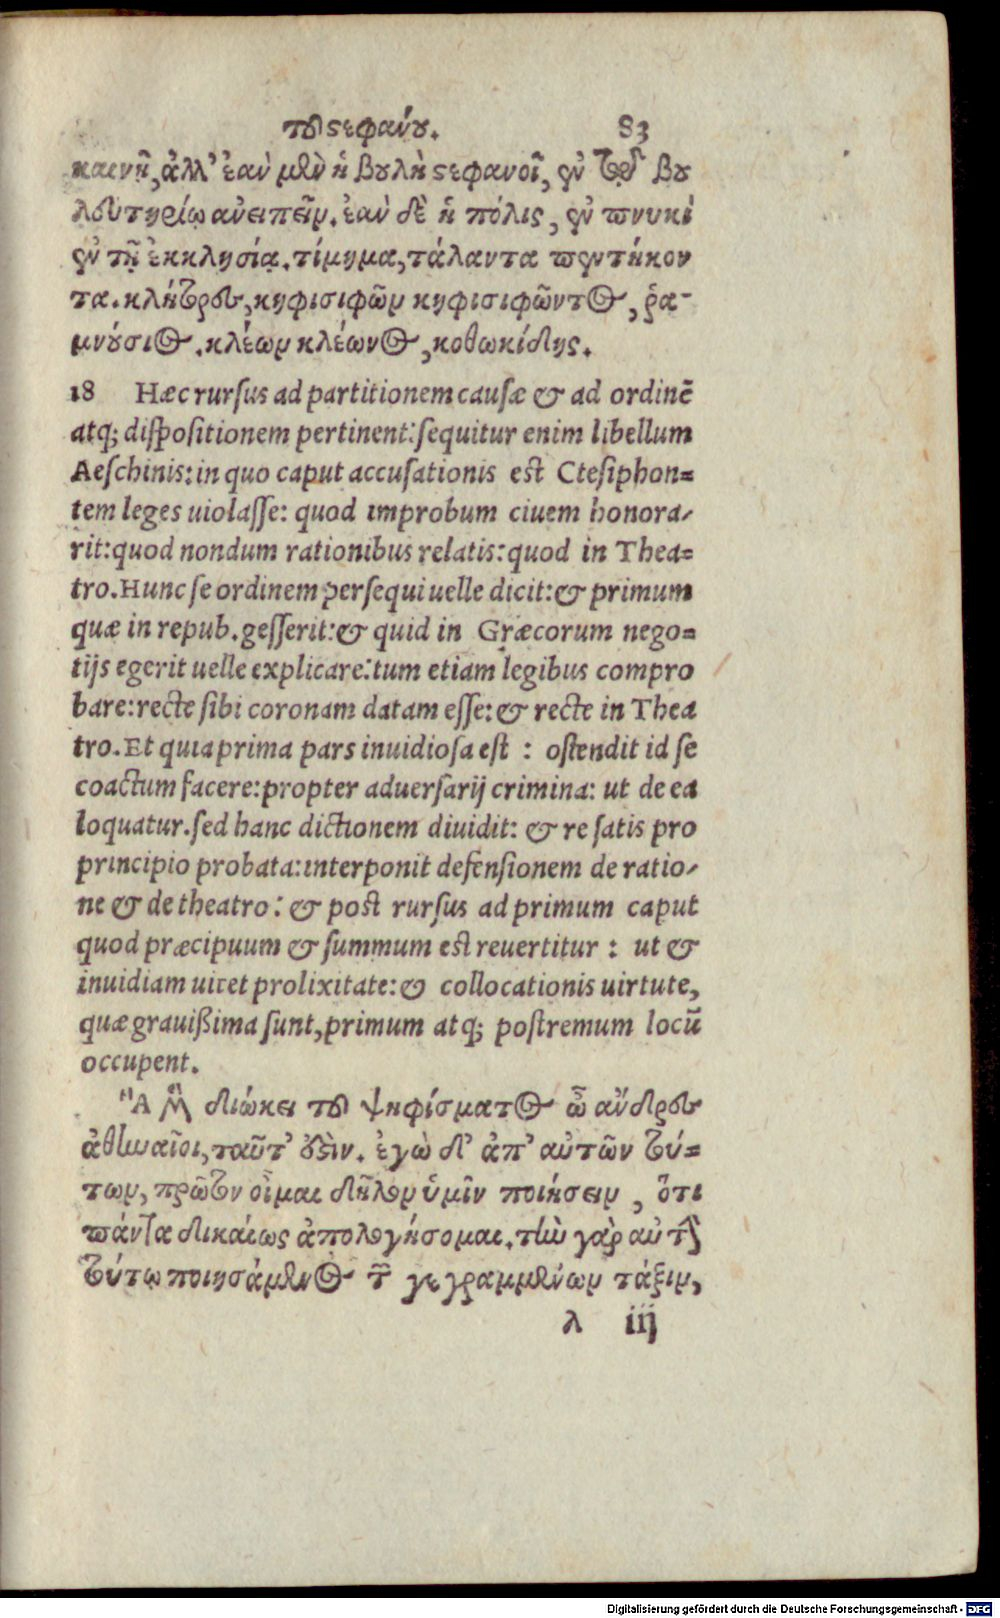 τοῦ στεφάνου. 83
καινῇ, ἀλλ’ ἐὰν μὲν ἡ βουλὴ στεφανοῖ, ἐν τῷ βου
λευτηρίῳ ἀνειπεῖν. ἐὰν δὲ ἡ πόλις, ἐν πνυκὶ
ἐν τῇ ἐκκλησίᾳ. τίμημα, τάλαντα πεντήκον
τα. κλήτορες, κηφισιφῶν κηφισιφῶντος, ῥα-
μνούσιος. κλέων κλέωνος, κοθωκίδης.
18 Hæc rursus ad partitionem causæ & ad ordinē
atq; dispositionem pertinent: sequitur enim libellum
Aeschinis: in quo caput accusationis est Ctesiphon=
tem leges uiolasse: quod improbum ciuem honora-
rit: quod nondum rationibus relatis: quod in Thea=
tro. Hunc se ordinem persequi uelle dicit: & primum
quæ in repub. gesserit: & quid in Græcorum nego=
tijs egerit uelle explicare: tum etiam legibus compro
bare: recte sibi coronam datam esse: & recte in Thea
tro. Et quia prima pars inuidiosa est : ostendit id se
coactum facere: propter aduersarij crimina: ut de ea
loquatur. sed hanc dictionem diuidit: & re satis pro
principio probata: interponit defensionem de ratio-
ne & de theatro: & post rursus ad primum caput
quod præcipuum & summum est reuertitur : ut &
inuidiam uitet prolixitate: & collocationis uirtute,
quæ grauißima sunt, primum atq; postremum locū
occupent.
Ἃ μὲν διώκει τοῦ ψηφίσματος ὦ ἄνδρες
ἀθηναῖοι, ταῦτ’ ἐστιν. ἐγὼ δ’ ἀπ’ αὐτῶν τού=
των, πρῶτον οἶμαι δῆλον ὑμῖν ποιήσειν, ὅτι
πάντα δικαίως ἀπολογήσομαι. τὴν γὰρ αὐτὴν
τούτῳ ποιησάμενος τῶν γεγραμμένων τάξιν,
λ iij
Digitalisierung gefördert durch die Deutsche Forschungsgemeinschaft - DFG